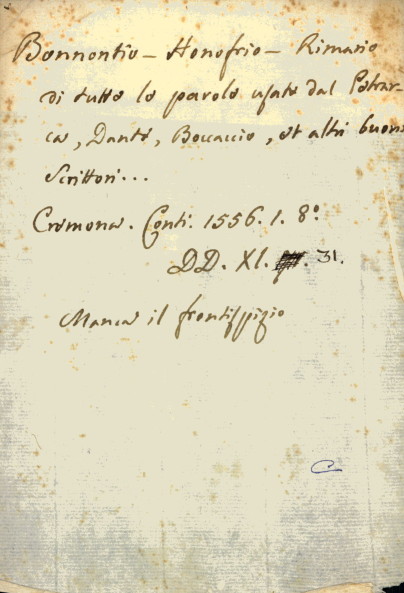 Bonnontio - Honofrio - Rimario
di tutte le parole usate dal Petrar-
ca, Dante, Boccaccio, et altri buoni
Scrittori...
Cremona. Conti. 1556. 1. 8°
DD. XI. 31.
Manca il frontispizio